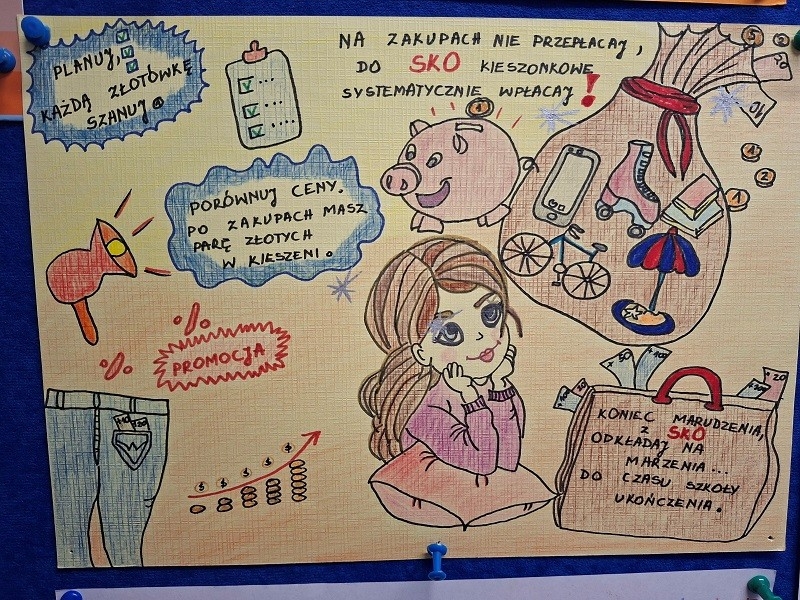 PLANUJ,
KAŻDĄ ZŁOTÓWKĘ
SZANUJ
NA ZAKUPACH NIE PRZEPŁACAJ,
DO SKO KIESZONKOWE
SYSTEMATYCZNIE WPŁACAJ!
PORÓWNUJ CENY.
PO ZAKUPACH MASZ
PARĘ ZŁOTYCH
W KIESZENI.
%
%
PROMOCJA
1
5
2
10
1
2
1
$ $ $ $ $
50
100
20
KONIEC MARUDZENIA,
Z SKO
ODKŁADAJ NA
MARZENIA...
DO CZASU SZKOŁY
UKOŃCZENIA.